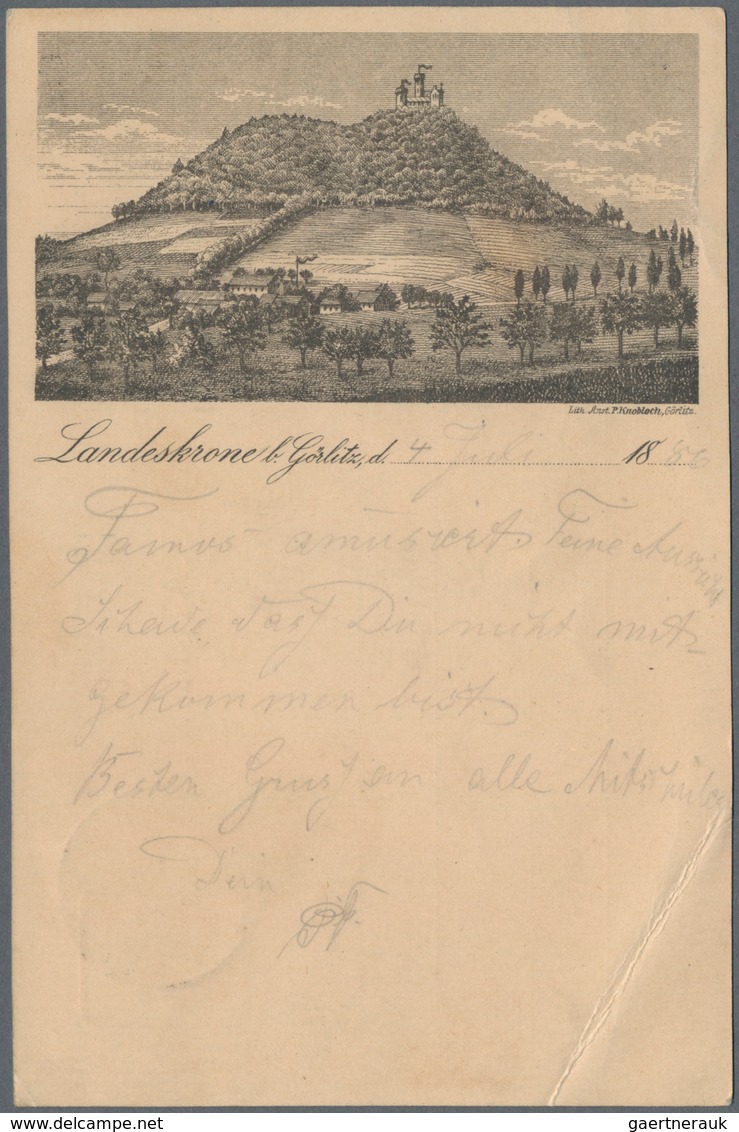 Lith. Anst. P. Knobloch, Görlitz.
Landeskrone b. Görlitz, d. 4 Juli 1886
Famos amüsiert. Feine Aussicht
Schade, daß Du nicht mit-
gekommen bist.
Besten Gruß an alle Mitschüler
Dein
gaertnerauk